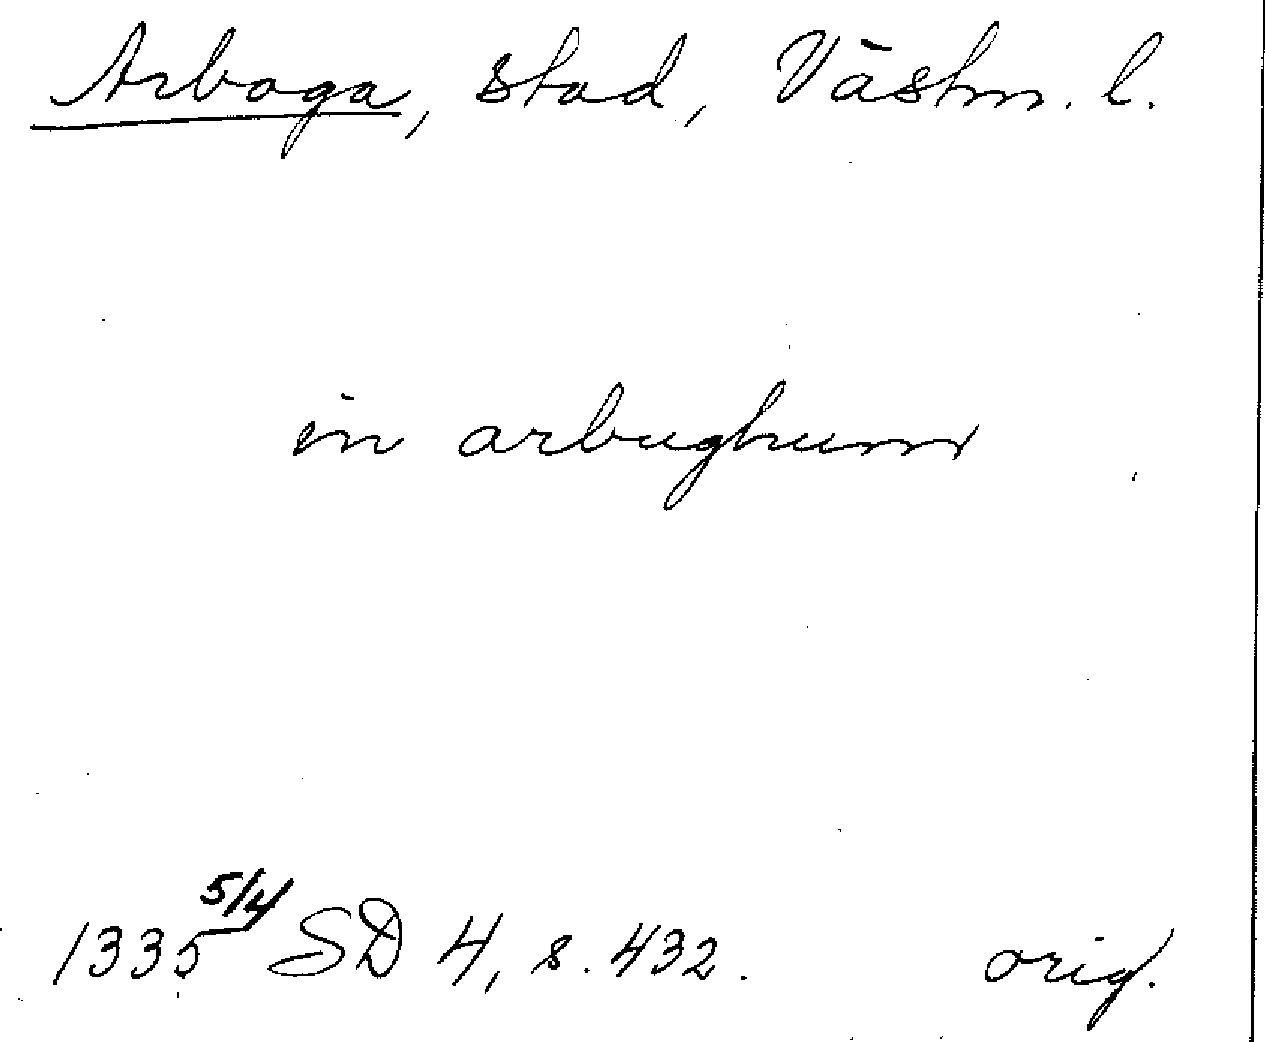 Arboga, stad, Västm. l.
in arbughum
1335 5/4 SD 4, s. 432. orig.